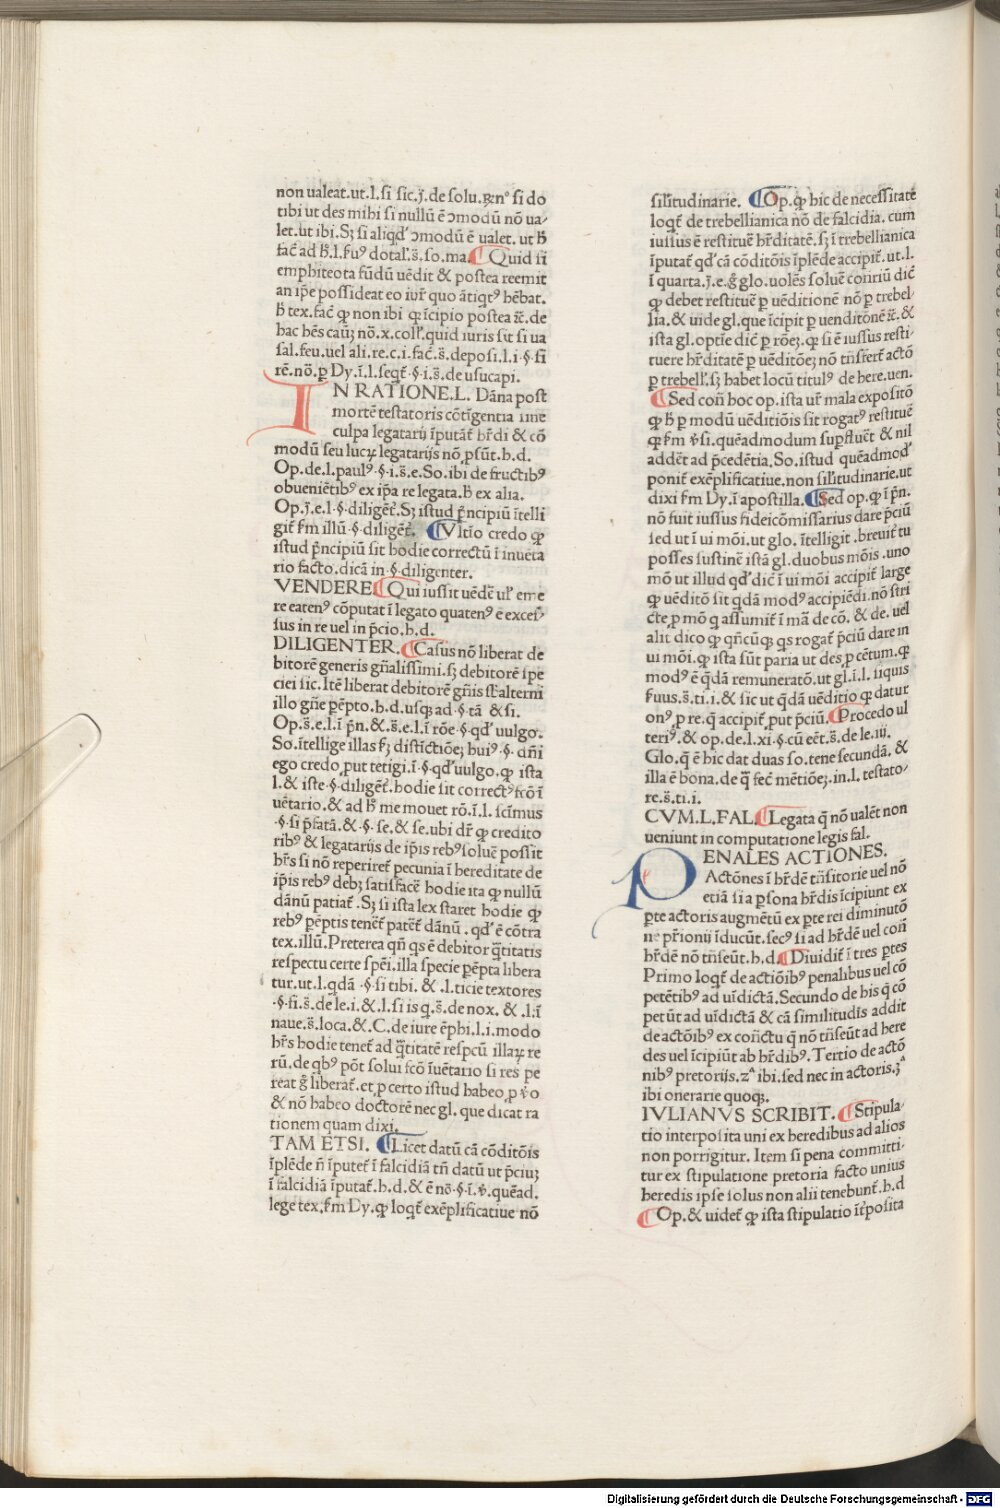 non ualeat.ut.l.si sic.j̄.de solu.ꝶ.n° si do
tibi ut des mihi si nullū ē ↄmodū nō ua-
let.ut ibi.Sꝫ si aliqd' ↄmodū ē ualet. ut ħ
fac̄ ad ħ.l.fuꝰ dotal'.s̄.so.ma. ¶ Quid si
emphiteota fūdū uēdit & postea reemit
an ip̄e possideat eo iur̄ quo ātiqtꝰ hēbat.
ħ tex.fac̄ ꝙ non ibi ꝙ īcipio postea ⁊c̄.de
hac hēs cauꝫ nō.x.coll'.quid iuris sit si ua
sal.feu.uel ali.re.c.i.fac̄.s̄.deposi.l.i.§.si
rē.nō.ꝑ Dy.ī.l.seqt̄.§.i.s̄.de usucapi.
IN RATIONE.L. Dāna post
mortē testatoris cōtīgentia sine
culpa legatarij īputāt̄ hr̄di & cō
modū seu lucꝝ legatarijs nō ꝓsūt.h.d.
Op.de.l.paulꝰ.§.i.s̄.e.So.ibi de fructibꝰ
obueniētibꝰ ex ip̄a re legata.ħ ex alia.
Op.j̄.e.l.§.diligēt̄.Sꝫ istud p̄ncipiū ītelli
git̄ s̄m illū.§.diligēt̄. ¶ Vltīo credo ꝙ
istud p̄ncipiū sit hodie correctū ī inuēta
rio facto.dicā in.§.diligenter.
VENDERE ¶ Qui iussit uēdē ul' eme
re eatenꝰ cōputat ī legato quatenꝰ ē exces-
sus in re uel in p̄cio.h.d.
DILIGENTER. ¶ Casus nō liberat de
bitorē generis gn̄alissimi.sꝫ debitorē spe
ciei sic.Itē liberat debitorē gn̄is sb̄alterni
illo gn̄e pēpto.h.d.usqꝫ ad.§.tā &si.
Op.s̄.e.l.ī p̄n.&.s̄.e.l.ī rōe.§.qd' uulgo.
So.ītellige illas s̄ꝫ distīctiōeꝫ huiꝰ.§. dn̄i
ego credo,put tetigi.ī.§.qd'uulgo.ꝙ ista
l.& iste.§.diligēt̄.hodie sit correctꝰ s̄rō ī
uētario.& ad ħ me mouet rō.ī.l. scīmus
.§.si p̄fatā.&.§.se.& se.ubi dr̄ ꝙ credito
ribꝰ & legatarijs de ip̄is rebꝰsoluē possit
hr̄s si nō reperiret̄ pecunia ī hereditate de
ip̄is rebꝰ debꝫ satisfacē hodie ita ꝙ nullū
dānū patiat̄ .Sꝫ si ista lex staret hodie ꝙ
rebꝰ pēptis tenēt̄ patēt̄ dānū .qd' ē cōtra
tex.illū.Preterea qn̄ qs ē debitor q̄titatis
respectu certe spēi.illa specie pēpta libera
tur.ut.l.qdā .§.si tibi. & .l.ticie textores
.§.si.s̄.de le.i.&.l.si is q.s̄.de nox. & .l.ī
naue.s̄.loca.&.C.de iure ēphi.l.i.modo
hr̄s hodie tenet̄ ad q̄titatē respcū illaꝝ re
rū.de qbꝰ pōt solui fcō īuētario si res pe
reat ḡ liberat̄.et,p certo istud habeo,p ꝟo
& nō habeo doctorē nec gl. que dicat ra
tionem quam dixi.
TAM ETSI. ¶ Licet datū cā cōditōis
īplēde n̄ īputet̄ ī falcidiā tn̄ datū ut p̄ciuꝫ
ī falcidiā īputat̄.h.d.& ē nō.§.ī.ꝟ.quēad.
lege tex.s̄m Dy.ꝙ loqt̄ exēplificatiue nō
silitudinarie. ¶ Op.ꝙ hic de necessitate
loqt̄ de trebellianica nō de falcidia. cum
iussus ē restituē hr̄ditatē.sꝫ ī trebellianica
īputat̄ qd' cā cōditōis īplēde accipit̄. ut.l.
ī quarta.j̄.e.ḡ glo.uolēs soluē cont̄riū dic̄
ꝙ debet restituē ꝑ uēditionē nō ꝑ trebel-
lia.& uide gl.que īcipit ꝑ uenditōnē ⁊c̄.&
ista gl.optīe dic̄ ꝑ rōeꝫ.ꝙ si ē iussus resti-
tuere hr̄ditatē ꝑ uēditōeꝫ nō tn̄sfert̄ actō
ꝑ trebell'.sꝫ habet locū titulꝰ de here.uen.
¶ Sed con̄ hoc op.ista ur̄ mala expositō
ꝙ ħ ꝑ modū uēditiōis sit rogatꝰ restituē
ꝙ s̄m ꝟsi.quēadmodum supfluēt & nil
addēt ad p̄cedētia.So.istud quēadmod'
ponit̄ exēplificatiue.non silitudinarie.ut
dixi s̄m Dy.ī apostilla. ¶ Sed op.ꝙ ī p̄n.
nō fuit iussus fideicōmissarius dare p̄ciū
sed ut ī ui mōi.ut glo. ītelligit .breuit̄ tu
posses sustinē istā gl.duobus mōis .uno
mō ut illud qd' dic̄ ī ui mōi accipit̄ large
ꝙ uēditō sit qdā modꝰ accipiēdi.nō stri
cte,p mō q assumit̄ ī mā de cō. & de. uel
alit̄ dico ꝙ qn̄cūqꝫ qs rogat̄ p̄ciū dare in
ui mōi.ꝙ ista sūt paria ut des,p cētum.ꝙ
modꝰ ē q̄dā remuneratō.ut gl.i.l. siquis
suus.s̄.ti.i.& sic ut q̄dā uēditio ꝙ datur
onꝰ,p re.q̄ accipit̄,put p̄ciū. ¶ Procedo ul
teriꝰ.& op.de.l.xi.§.cū eēt.s̄.de le.iij.
Glo.q̄ ē hic dat duas so.tene secundā. &
illa ē bona.de q̄ fec̄ mētiōeꝫ.in.l. testato-
re.s̄.ti.i.
CVM.L.FAL. ¶ Legata q̄ nō ualēt non
ueniunt in computatione legis fal.
PENALES ACTIONES.
Actōnes ī hr̄dē tn̄sitorie uel nō
etiā si a ꝑsona hr̄dis īcipiunt ex
pte actoris augmētū ex pte rei diminutō
nē p̄rionij īducūt.secꝰ si ad hr̄dē uel con̄
hr̄dē nō tn̄seūt.h.d. ¶ Diuidit̄ ī tres ptes
Primo loqt̄ de actiōibꝰ penalibus uel cō
petētibꝰ ad uīdictā.Secundo de his q̄ cō
petūt ad uīdictā & cā similitudīs addit
de actōibꝰ ex con̄ctu q̄ nō tn̄seūt ad here
des uel īcipiūt ab hr̄dibꝰ.Tertio de actō
nibꝰ pretorijs.zᵃ ibi.sed nec in actoris.ꝫᵃ
ibi onerarie quoqꝫ.
IVLIANVS SCRIBIT. ¶ Stipula-
tio interposita uni ex heredibus ad alios
non porrigitur. Item si pena committi-
tur ex stipulatione pretoria facto unius
heredis ipse solus non alii tenebunt̄.h.d
¶ Op.& uidet̄ ꝙ ista stipulatio īt̄posita
Digitalisierung gefördert durch die Deutsche Forschungsgemeinschaft - DFG